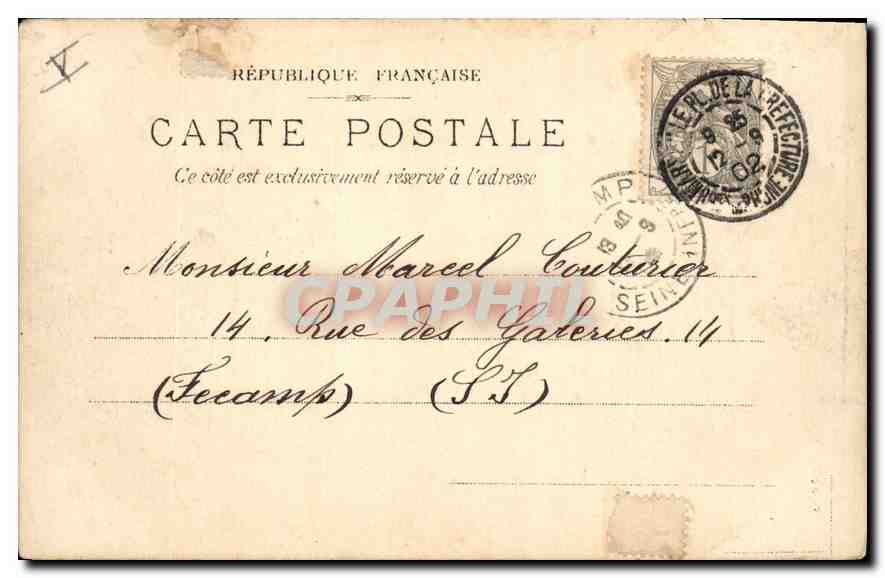 V
RÉPUBLIQUE FRANÇAISE
CARTE POSTALE
Ce côté est exclusivement réservé à l'adresse
PL. DE LA PREFECTURE
25
02
SEINE
Monsieur Marcel Couturier
CPAPHIL
14, Rue des Galeries. 14
(Fecamp) (SI)